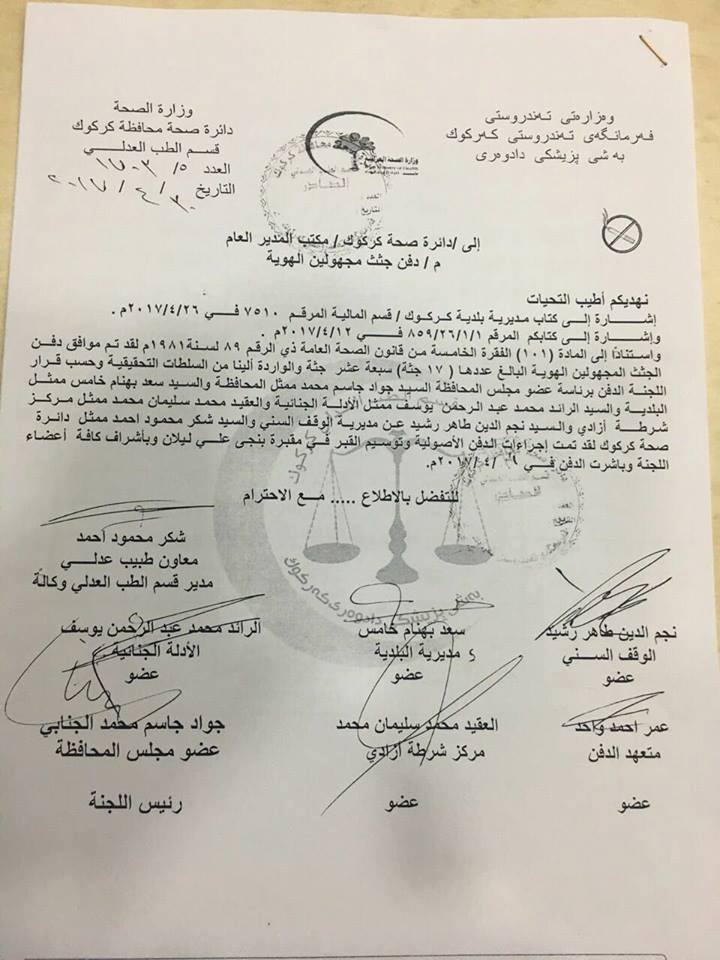 وزارة الصحة
دائرة صحة محافظة كركوك
قسم الطب العدلي
العدد ١٧٠٣/٥
التاريخ ٢٠١٧/٤/٣٠
وەزارەتی تەندروستی
فەرمانگەی تەندروستی کەرکوک
بەشی پزیشکی دادوەری
وزارة الصحة العراقية
الصادر
العدد
التاريخ
إلى /دائرة صحة كركوك / مكتب المدير العام
م / دفن جثث مجهولين الهوية
نهديكم أطيب التحيات
إشارة إلى كتاب مديرية بلدية كركوك / قسم المالية المرقم ٧٥١٠ في ٢٠١٧/٤/٢٦م .
وإشارة إلى كتابكم المرقم ٨٥٩/٢٦/١/١ في ٢٠١٧/٤/١٢م .
واستنادًا إلى المادة (١٠١) الفقرة الخامسة من قانون الصحة العامة ذي الرقم ٨٩ لسنة١٩٨١م لقد تم موافق دفن
الجثث المجهولين الهوية البالغ عددها ( ١٧ جثة) سبعة عشر جثة والواردة ألينا من السلطات التحقيقية وحسب قرار
اللجنة الدفن برئاسة عضو مجلس المحافظة السيد جواد جاسم محمد ممثل المحافظة والسيد سعد بهنام خامس ممثل
البلدية والسيد الرائد محمد عبد الرحمن يوسف ممثل الأدلة الجنائية والعقيد محمد سليمان محمد ممثل مركز
شرطة أزادي والسيد نجم الدين طاهر رشيد عن مديرية الوقف السني والسيد شكر محمود احمد ممثل دائرة
صحة كركوك لقد تمت إجراءات الدفن الأصولية وتوسيم القبر في مقبرة بنجى علي ليلان وبأشراف كافة أعضاء
اللجنة وباشرت الدفن في ٢٦ /٤ /٢٠١٧م.
للتفضل بالاطلاع ..... مع الاحترام
شكر محمود احمد
معاون طبيب عدلي
مدير قسم الطب العدلي وكالة
بەشی پزیشکی دادوەری کەرکوک
نجم الدين طاهر رشيد
الوقف السني
عضو
سعد بهنام خامس
مديرية البلدية
عضو
الرائد محمد عبد الرحمن يوسف
الأدلة الجنائية
عضو
عمر احمد واحد
متعهد الدفن
عضو
العقيد محمد سليمان محمد
مركز شرطة أزادي
عضو
جواد جاسم محمد الجنابي
عضو مجلس المحافظة
رئيس اللجنة